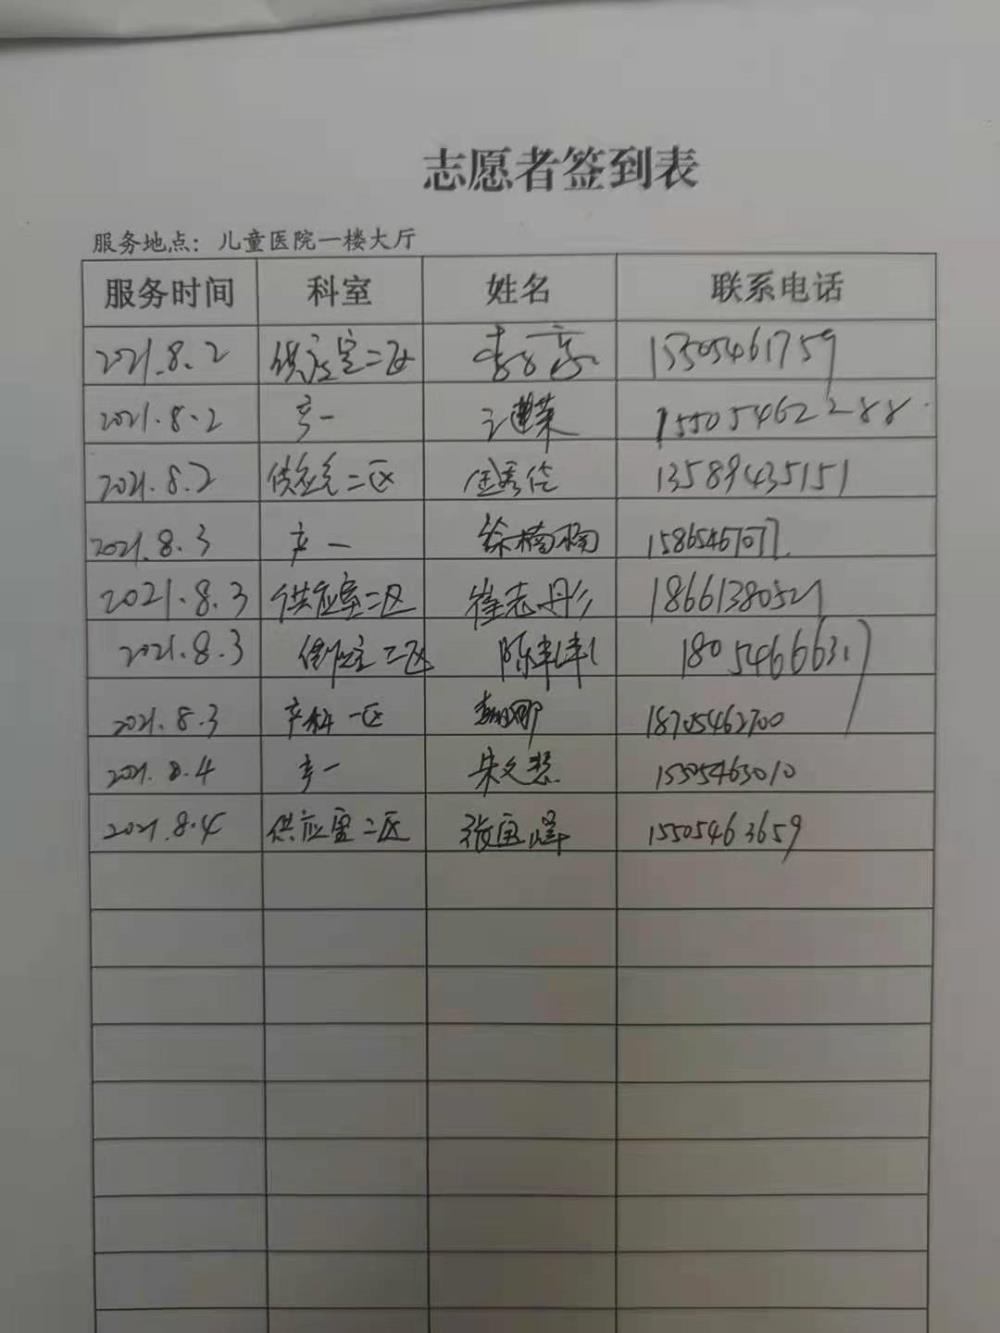 志愿者签到表
服务地点：儿童医院一楼大厅
服务时间 科室 姓名 联系电话
2021.8.2 供应室二区 15305461759
2021.8.2 产一 15505462288
2021.8.2 供应室二区 13589435151
2021.8.3 产一 徐楠楠 15865467077
2021.8.3 供应室二区 崔志丹 18661380521
2021.8.3 供应室二区 陈 18054666317
2021.8.3 产科一区 18705462700
2021.8.4 产一 宋文慧 15505463010
2021.8.4 供应室二区 张宝峰 15505463659